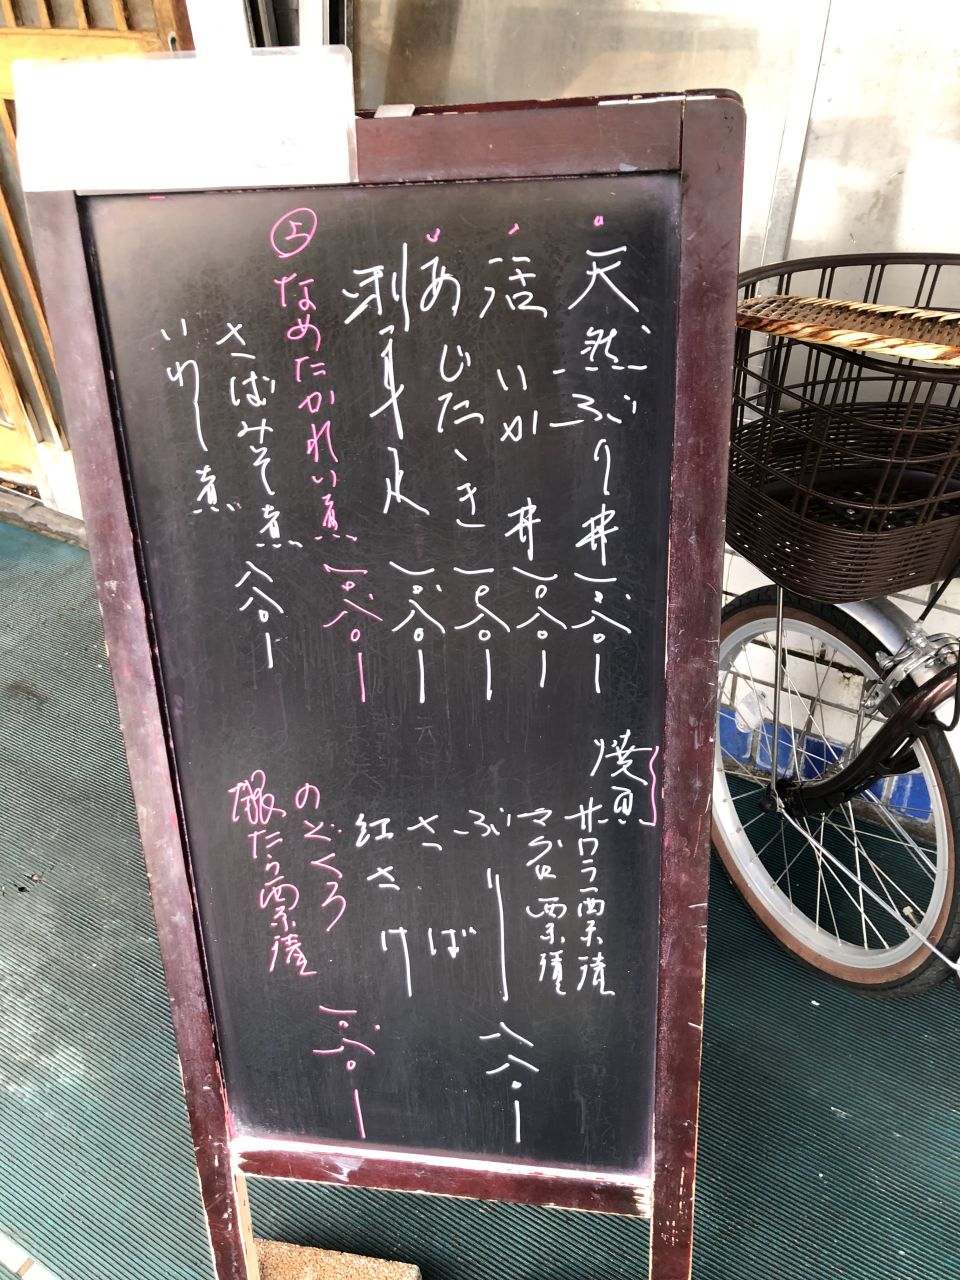 天然ぶり丼 一〇八〇ー
活いか丼 一〇八〇ー
あじたゝき 一〇八〇ー
刺身 一〇八〇ー
上 なめたかれい煮 一〇八〇ー
さばみそ煮 八八〇ー
いわし煮
焼魚
サワラ西京漬
マグロ西京漬
ぶり 八八〇ー
さば
紅さけ
のどくろ 一〇八〇ー
銀たら西京漬